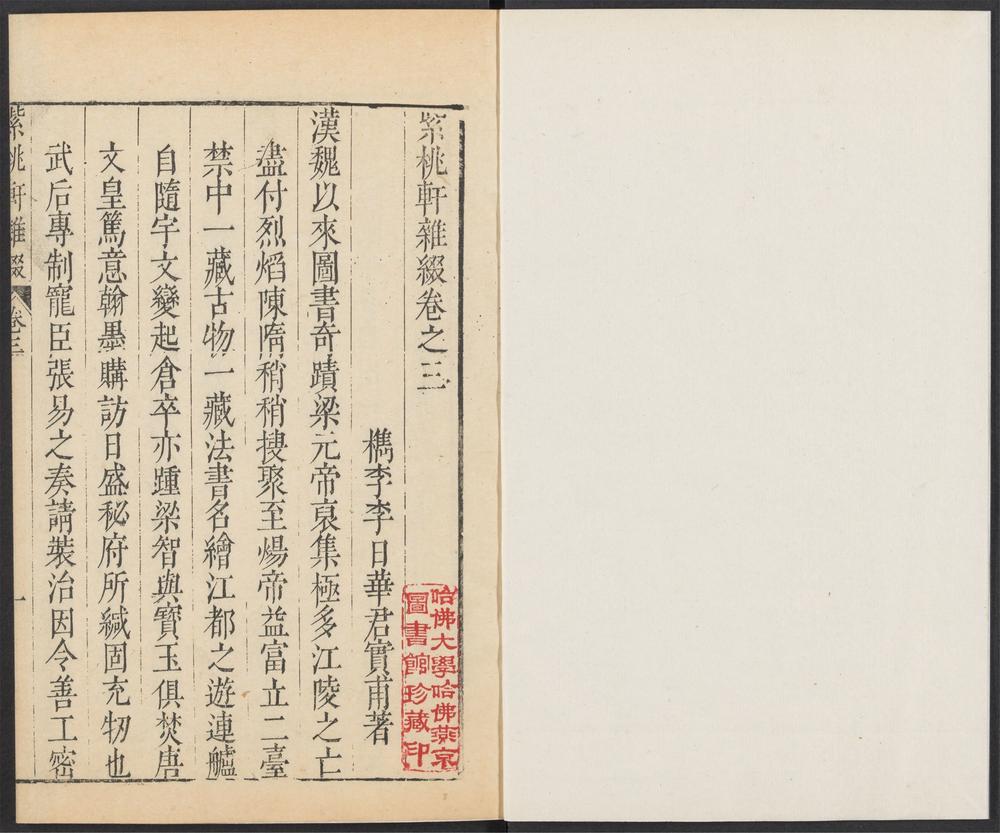 紫桃軒雜綴卷之三
檇李李日華君實甫著
漢魏以來圖書奇蹟梁元帝裒集極多江陵之亡
盡付烈焰陳隋稍稍搜聚至煬帝益富立二臺
禁中一藏古物一藏法書名繪江都之遊連艫
自隨宇文變起倉卒亦踵梁智與寶玉俱焚唐
文皇篤意翰墨購訪日盛秘府所緘固充牣也
武后專制寵臣張易之奏請裝治因令善工密
紫桃軒雜綴
卷三
一
哈佛大學哈佛燕京
圖書館珍藏印